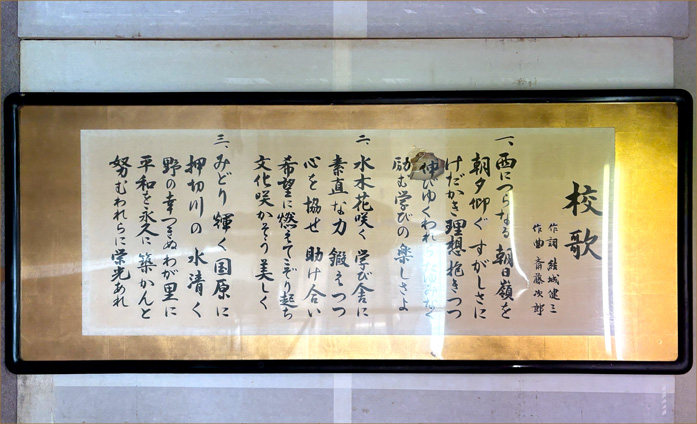 校歌
作詞 結城健三
作曲 斎藤次郎
一、西につらなる 朝日嶺を
朝夕仰ぐ すがしさに
けだかき理想 抱きつつ
伸びゆくわれ
励む学びの 楽しさよ
二、水木花咲く 学び舎に
素直な力 鍛えつつ
心を協せ 助け合い
希望に燃えてこぞり起ち
文化咲かそう 美しく
三、みどり輝く 国原に
押切川の 水清く
野の幸つきぬわが里に
平和を永久に 築かんと
努むわれらに 栄光あれ